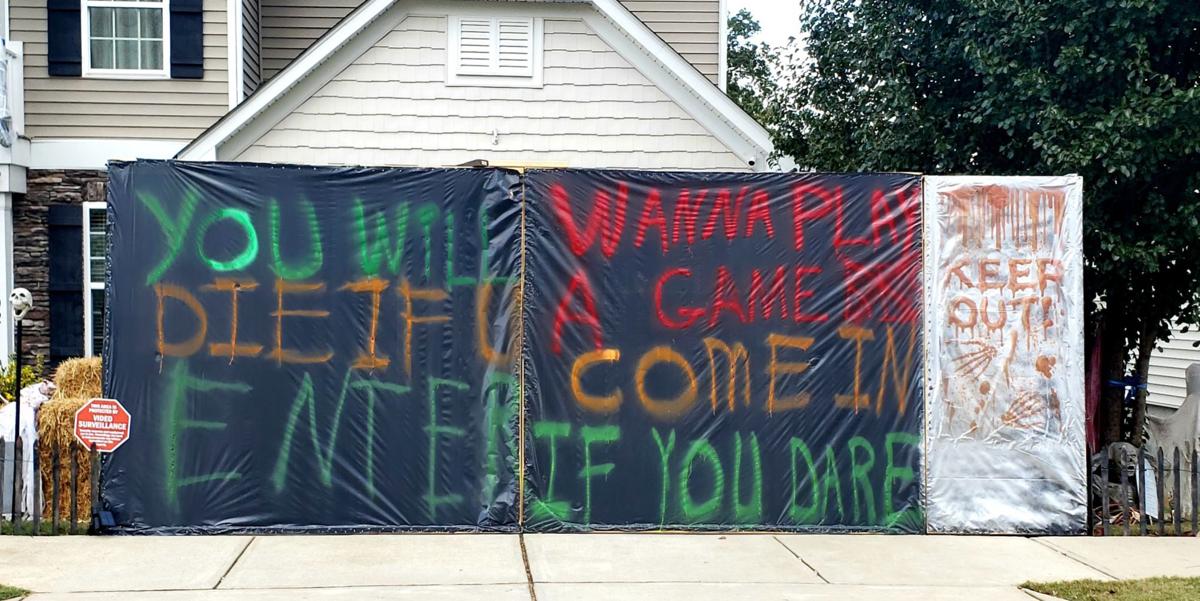 YOU WILL
DIE IF U
ENTER
WANNA PLAY
A GAME
COME IN
IF YOU DARE
KEEP
OUT!
THIS AREA IS
PROTECTED BY
VIDEO
SURVEILLANCE